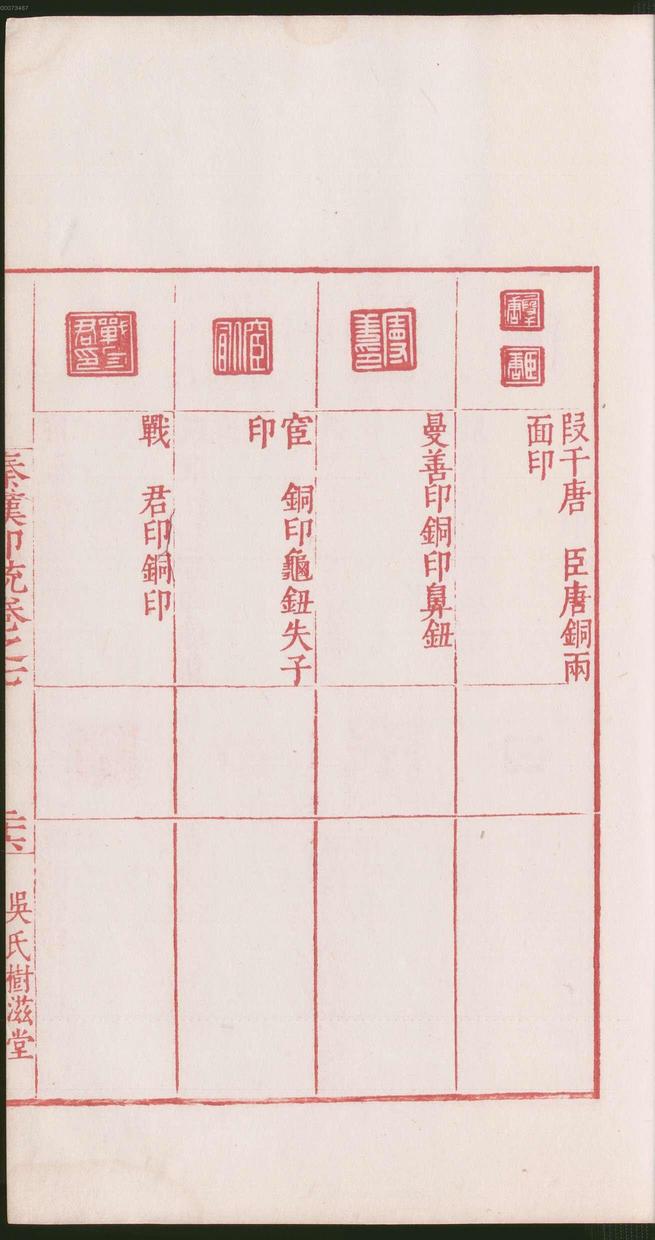 00073467
段干唐　臣唐銅兩
面印
曼善印銅印鼻鈕
宦　銅印龜鈕失子
印
戰　君印銅印
秦漢印統卷之七
二十六
吳氏樹滋堂